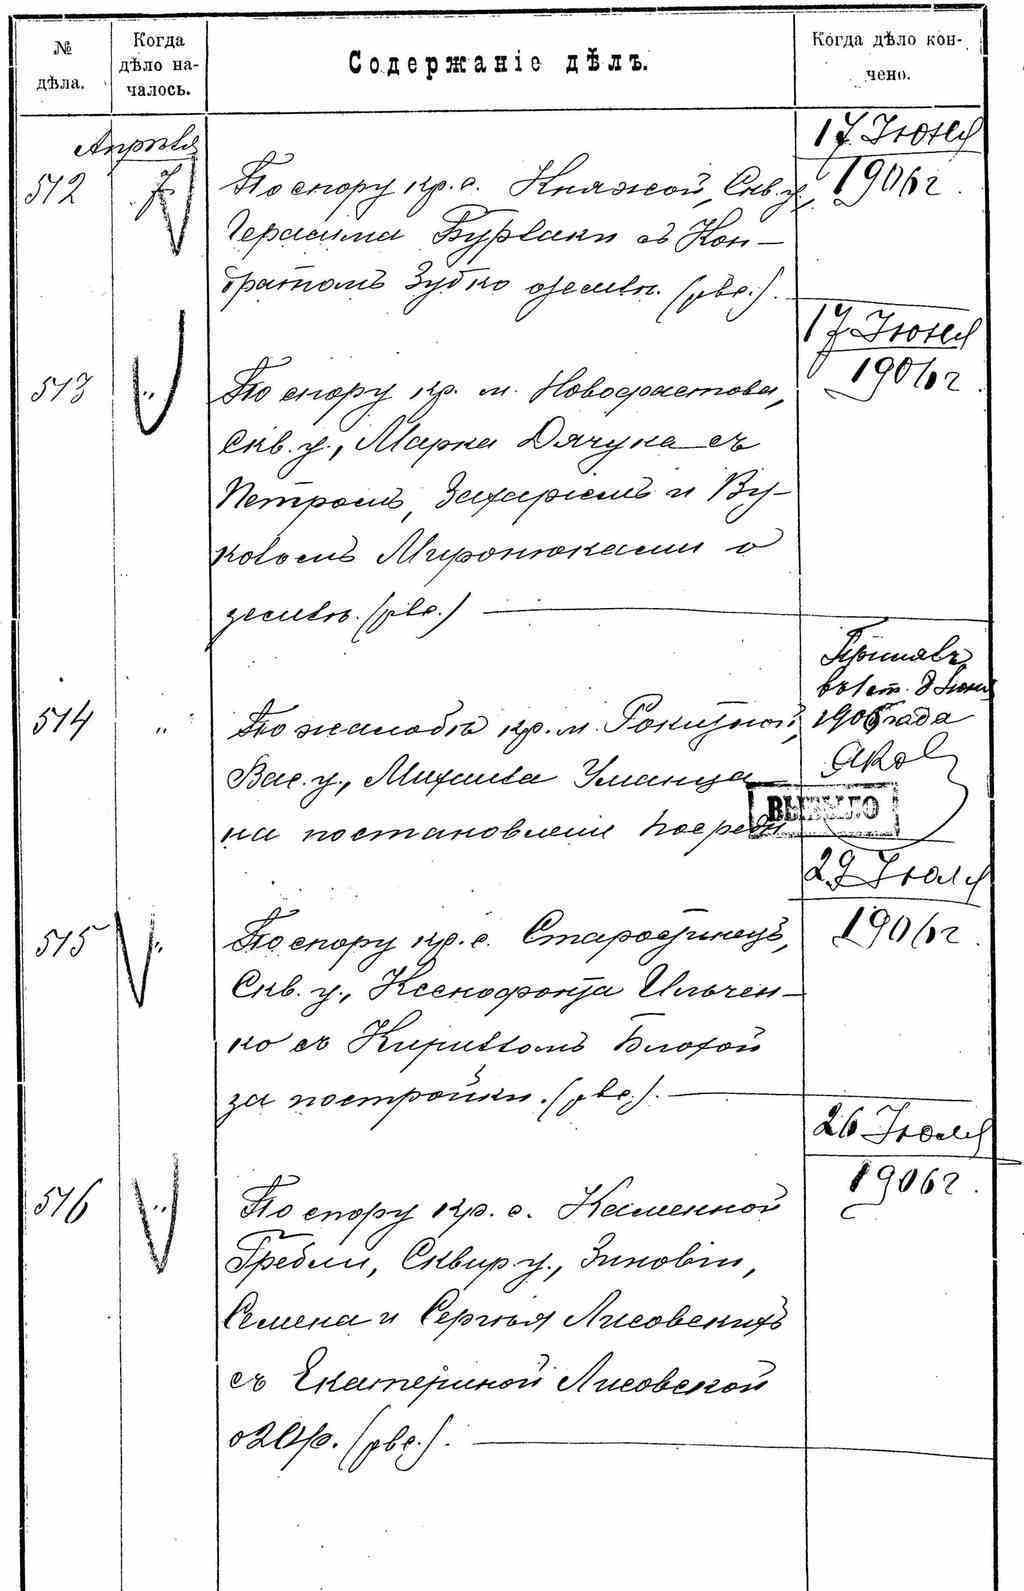 № дѣла.
Когда дѣло на-
чалось.
Содержаніе дѣлъ.
Когда дѣло кон-
чено.
Апрѣля
512
7
По спору кр. с. Княжой, Скв. у.,
Герасима Бурлаки съ Кон-
дратомъ Зубко о землѣ. (рѣв.).
17 Июня
1906 г.
513
"
По спору кр. м. Новофастова,
Скв. у., Марка Дячука съ
Петромъ, Захаріемъ и Ву-
коломъ Миронюками о
землѣ. (рев.)
17 Июня
1906 г.
514
"
По жалобѣ кр. м. Рокитной,
Вас. у., Михаила Уманца
на постановленіе посредн
в 1 ст. 8 Июня
1906 года
ВЫБЫЛО
515
"
По спору кр. с. Старостинецъ,
Скв. у., Ксенофонта Ильчен-
ко съ Кирилломъ Блохой
за постройки. (рев.).
29 Июля
1906 г.
516
"
По спору кр. с. Каменной
Гребли, Сквир. у., Зиновіи,
Семена и Сергѣя Лисовскихъ
съ Екатериной Лисовской
о 20 р. (рев.).
26 Июля
1906 г.